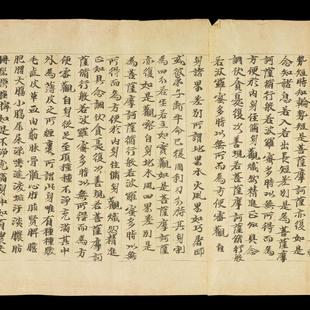 勢短時知輪勢短是菩薩摩訶薩亦復如是
念知諸息若入若出長短差別是為菩薩摩
訶薩修行般若波羅蜜多時以無所得而為
方便於內身住循身觀熾然精進正知具念
調伏貪憂復次善現若菩薩摩訶薩修行般
若波羅蜜多時以無所得而為方便審觀自
身諸界差別所謂地界水火風界如巧屠師
或彼弟子斷牛命已復用利刀分析其身割
為四分若坐若立如實觀知菩薩摩訶薩
亦復如是觀察自身地水火風四界差別是
為菩薩摩訶薩修行般若波羅蜜多時以無
所得而為方便於內身住循身觀熾然精進
正知具念調伏貪憂復次善現若菩薩摩訶
薩修行般若波羅蜜多時以無所得而為方
便審觀自身從足至頂種種不淨充滿其中
外為薄皮之所纏裹所謂此身唯有種種髮
毛爪齒皮革血肉筋脈骨髓心肝肺腎脾膽
胞胃大腸小腸屎尿洟唾涎淚垢汗淡膿